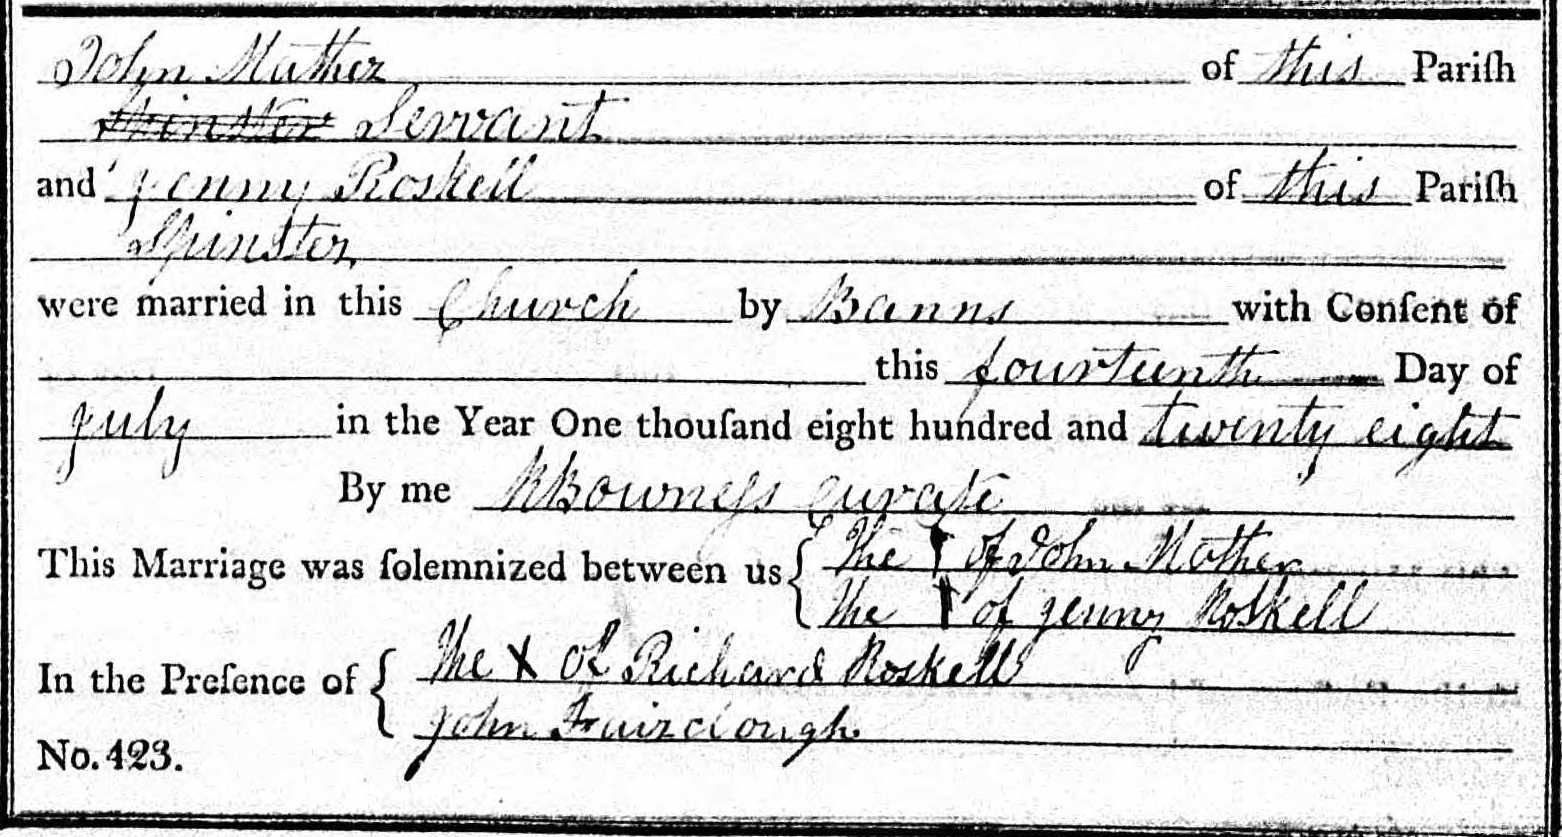 John Mather of this Pariſh
Spinster Servant
and Jenny Roskell of this Pariſh
Spinster
were married in this Church by Banns with Conſent of
this fourteenth Day of
July in the Year One thouſand eight hundred and twenty eight
By me RBowneſs Curate
This Marriage was ſolemnized between us { The X of John Mather
The X of Jenny Roskell
In the Preſence of { The X of Richard Roskell
John Fairclough
No. 423.